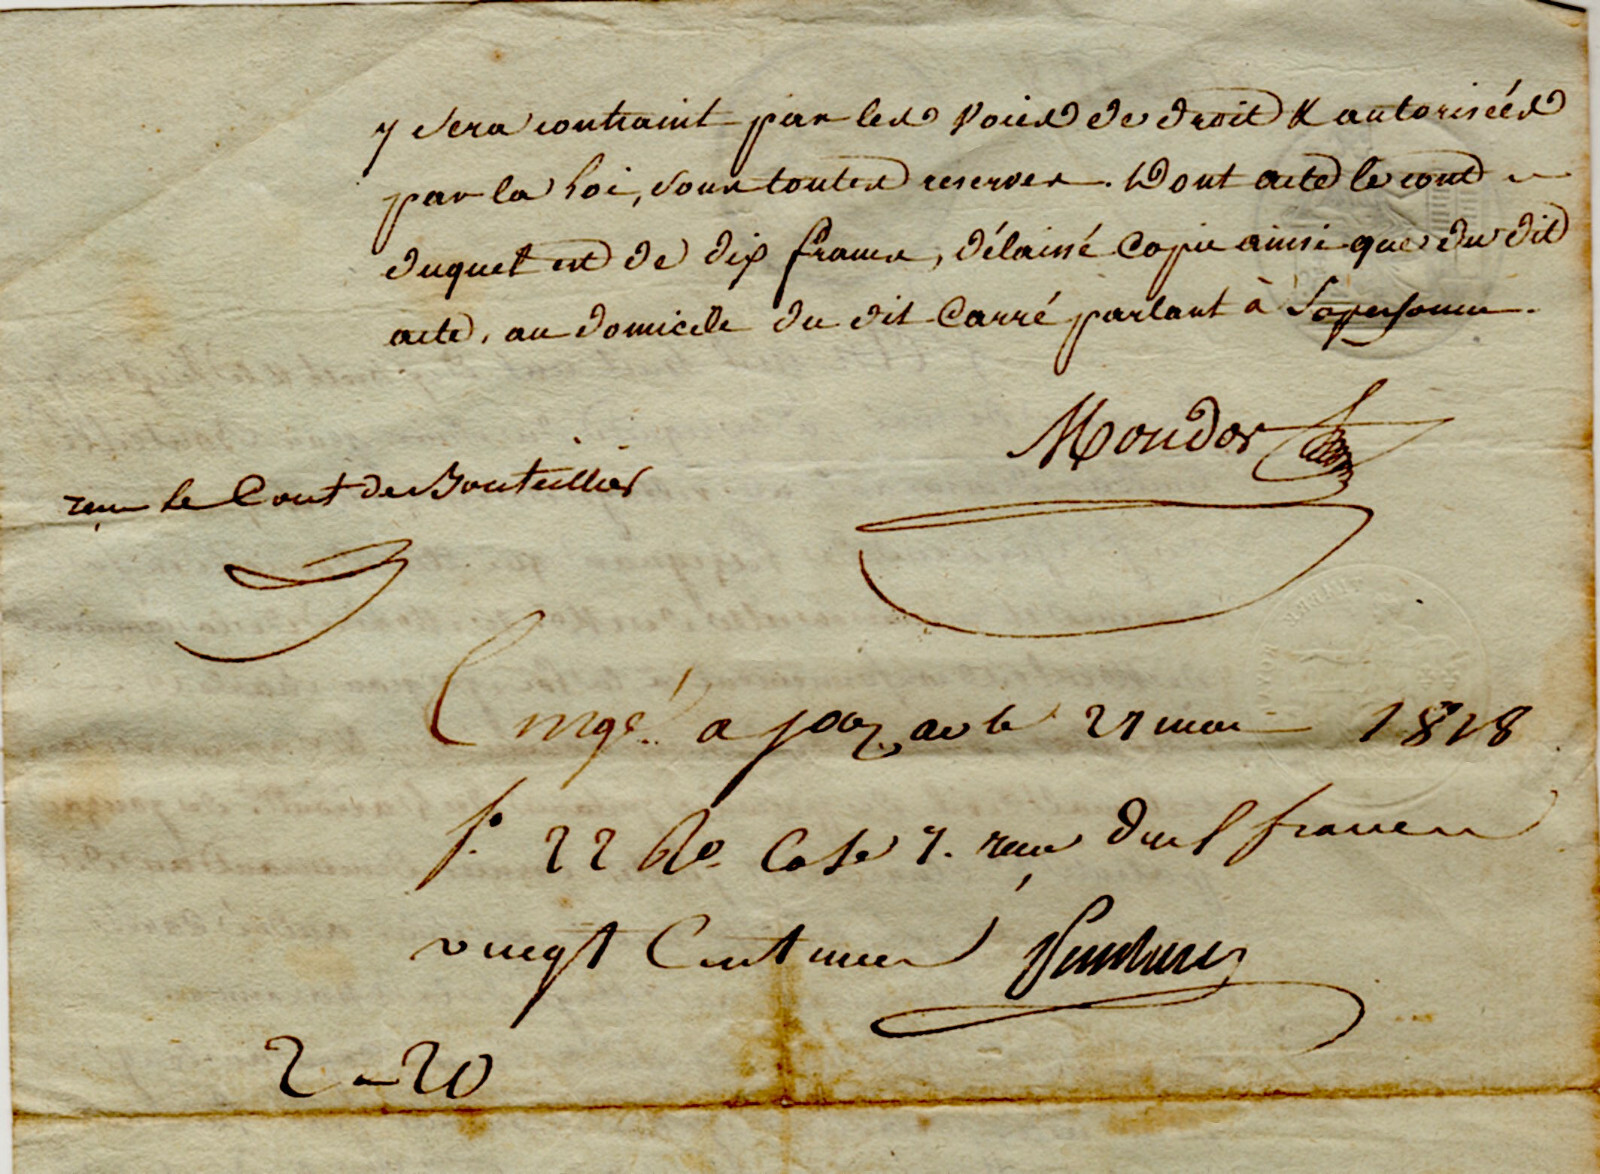 y sera contraint par les voies de droit & autorisées
par la Loi, sous toutes reserves. Dont acte le cout
duquel est de dix francs, délaissé copie ainsi que du dit
acte, au domicile du dit Carré parlant à Sapersonne.
Moudor
recu le Cout de Bouteillier
Enrgé. a le 27 mai 1818
f.o 22 Vo. Case 7. recu deux francs
vingt Centimes
2 - 20